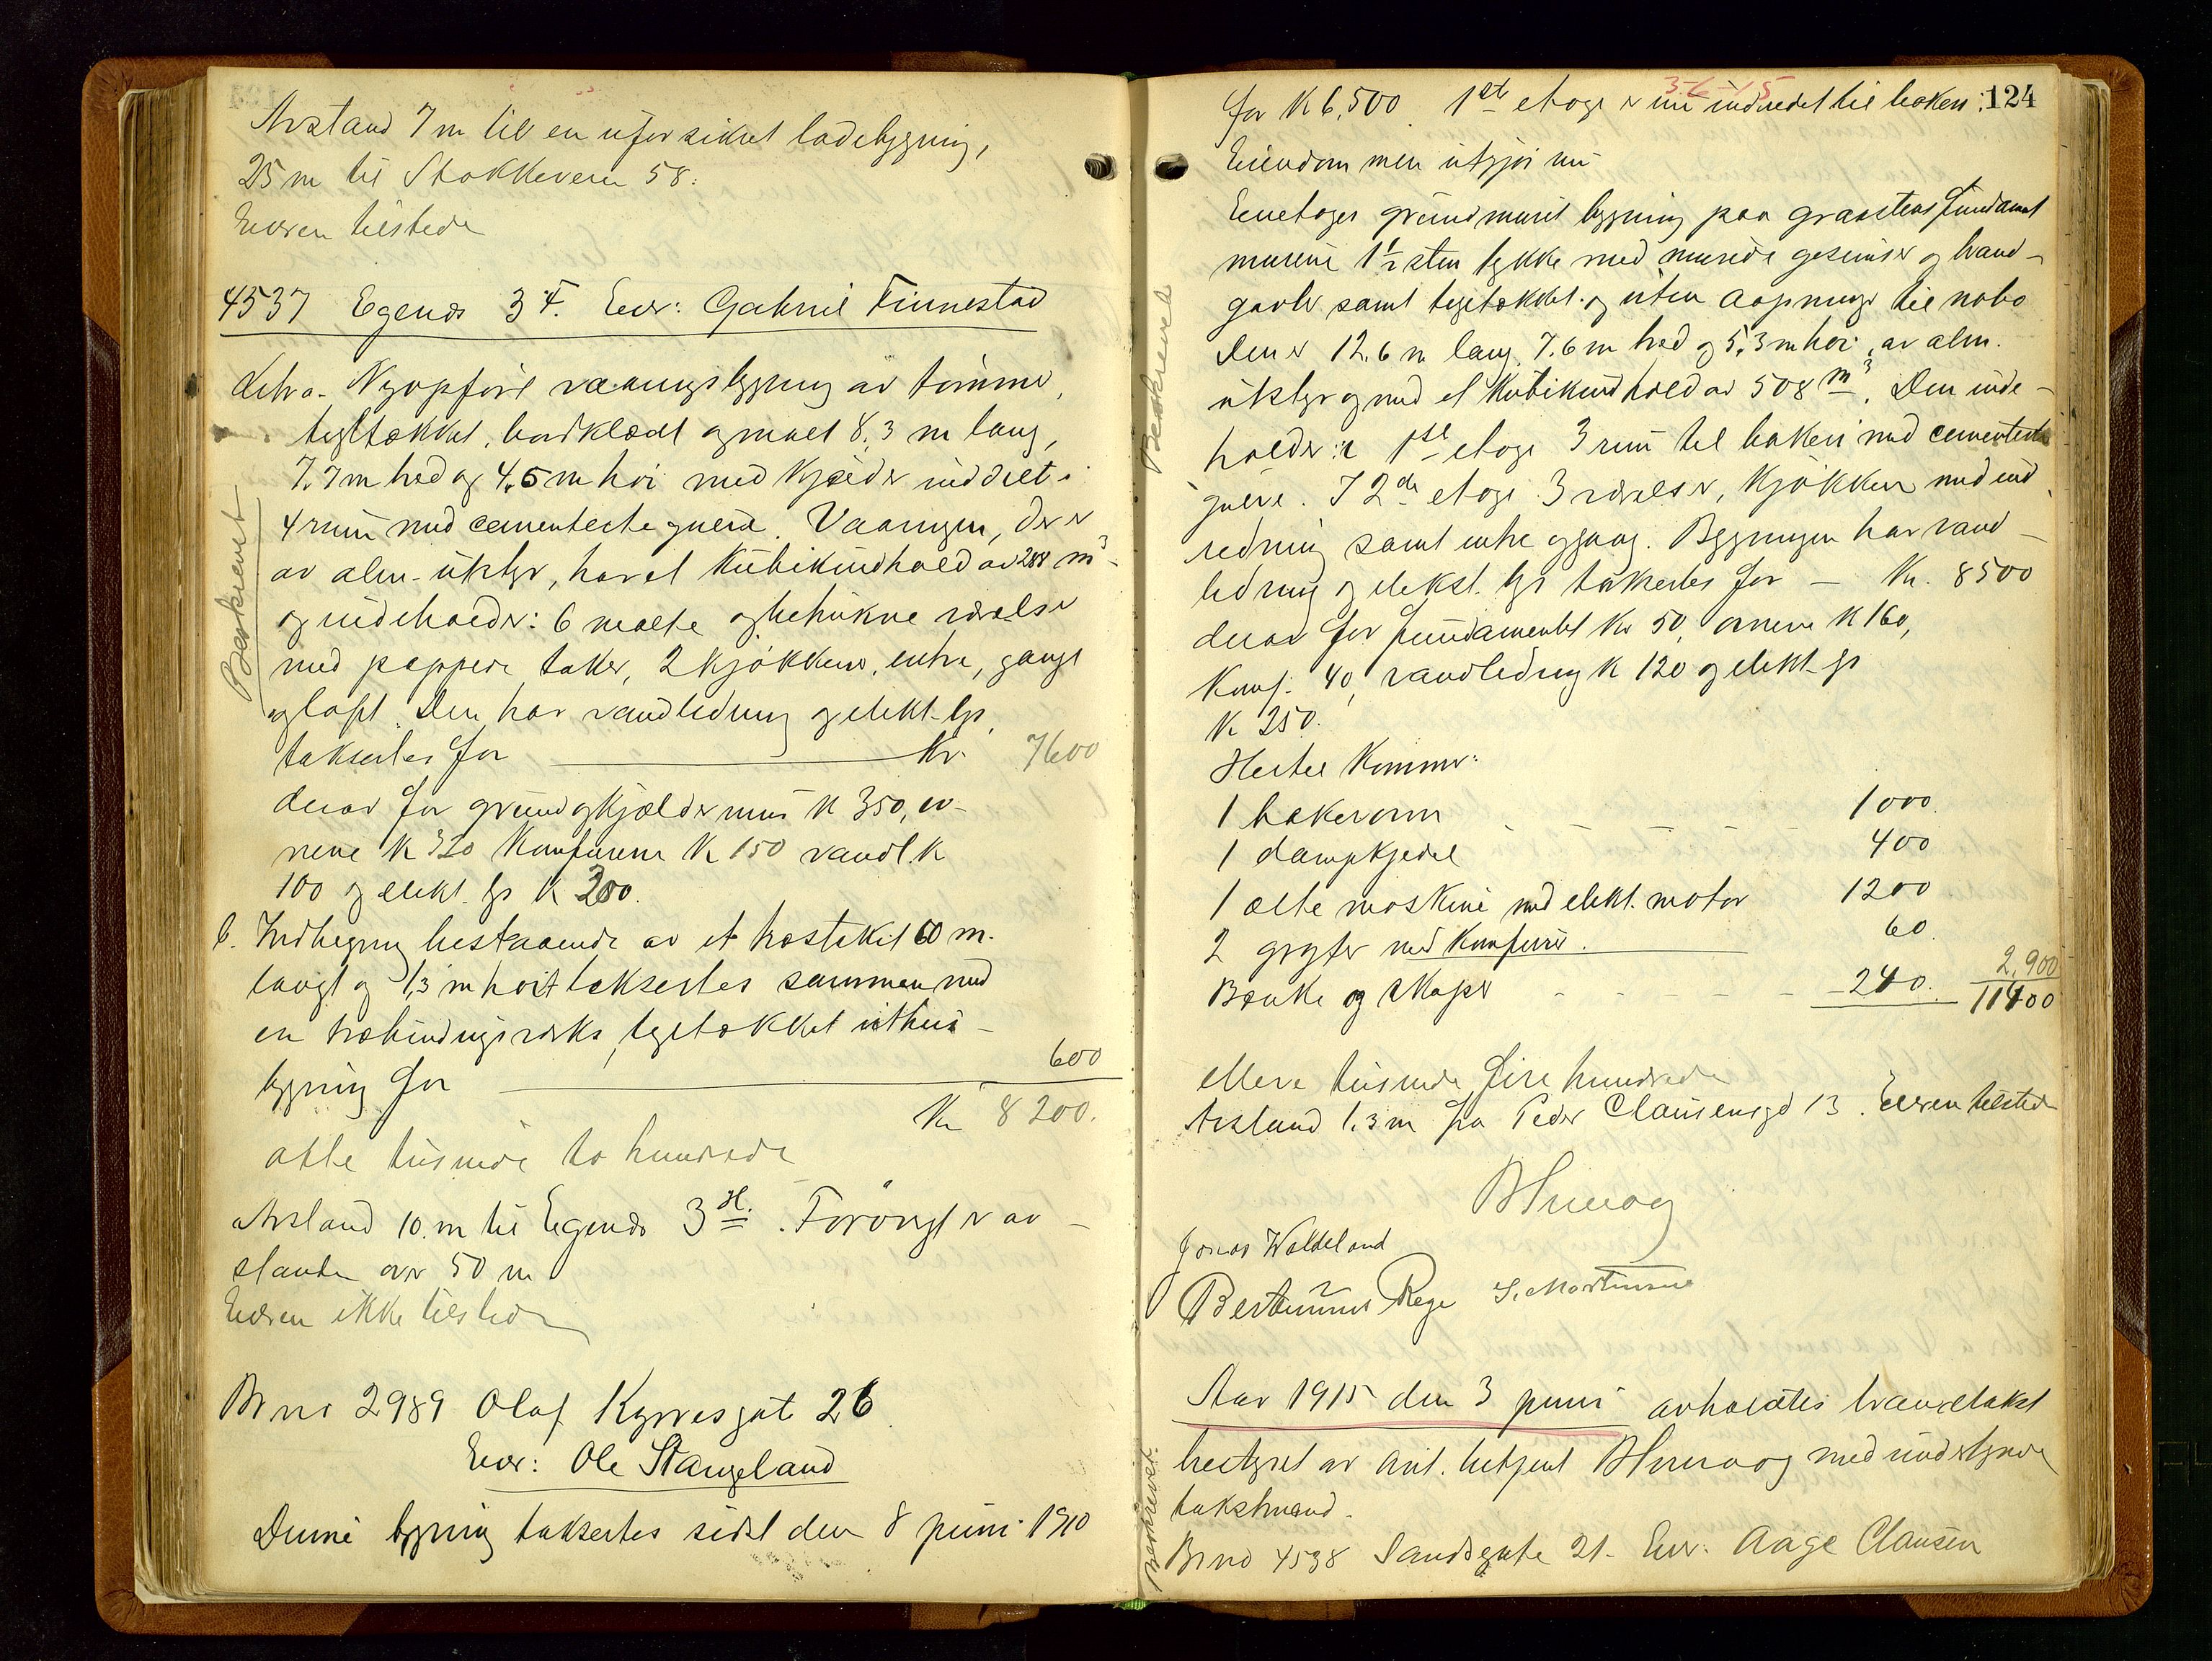 Avstand 7 m til en uforsikret ladebygning,
25 m til Stokkeveien 58.
Eieren tilstede
4537 Egends 3 F. Eier: Gabriel Finnestad
Litra a. Nyopført vaaningsbygning av tømmer,
tegltækket, bordklædt og malt 8,3 m lang,
7.7 m bred og 4,5 m høi med kjelder inddelt i
4 rum med cementerte gulve. Vaaningen, der er
av alm. utstyr, har et kubikindhold av 288 m³
og indeholder: 6 malte og betrukne værelser
med pappede taker, 2 kjøkkener, entre, gange
og loft. Den har vandledning og elekt. lys,
takseres for Kr. 7600
derav for grund og kjældermur K 350, ov-
nene K 320 Komfurene K 150 vandl. K
100 og elekt. lys K 200.
b. Indhegning bestaaende av et træstakit 60 m.
langt og 1,3 m høit takseres sammen med
en træbindingsverks, tegltækket uthus-
bygning for 600
Kr 8200.
otte tusinde to hundrede
Avstand 10. m til Egends 3 H. Forøvrigt er av-
standen over 50 m
Eieren ikke tilstede
Beskrevet
Br no 2989 Olaf Kyrresgate 26
Eier: Ole Stangeland
Denne bygning taksertes sidst den 8 juni 1910
3-6-15
124
for K 6,500. 1ste etage er nu indredet til bakeri.
Eiendommen utgjør nu
Enetages grundmuret bygning paa graastens fundament
murene 1½ sten tykke med murede gesimser og brand-
gavler samt tegltækket og uten aapninger til nabo
Den er 12.6 m lang, 7.6 m bred og 5,3 m høi, av alm.
utstyr og med et kubikindhold av 508 m³. Den inde-
holder: i 1ste etage 3 rum til bakeri med cementerte
gulve. I 2den etage 3 værelser, kjøkken med ind-
redning samt entre og gang. Bygningen har vand-
ledning og elekt. lys takseres for - Kr. 8500
derav for fundamentet Kr 50, ovnene K 160,
Komf. 40, vandledning K 120 og elekt. lys
K 250.
Hertil kommer:
1 bakerovn 1000.
1 dampkjedel 400
1 elte maskine med elekt. motor 1200
2 gryter med komfurer. 60.
Bænke og skaper 240. 2,900
11400
elleve tusinde fire hundrede
Avstand 1,3 m fra Peder Clausensgd 13. Eieren tilstede
Jonas Waldeland
Bertinius Rege S. Mortensen
Beskrevet
Aar 1915 den 3 juni avholdtes brandtakst
bestyret av aut. betjent med undertegnede
takstmænd.
Br no 4538 Sandsgate 21. Eier: Aage Clausen
Beskrevet.